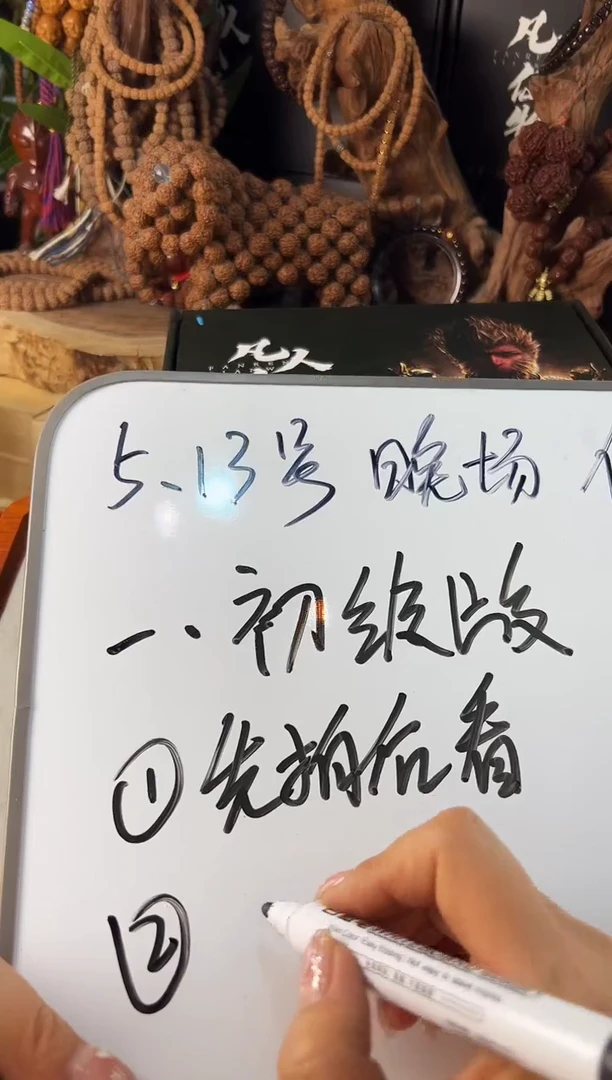 凡人
凡人
5、13号 晚场
一、初级版
①先拍后看
②